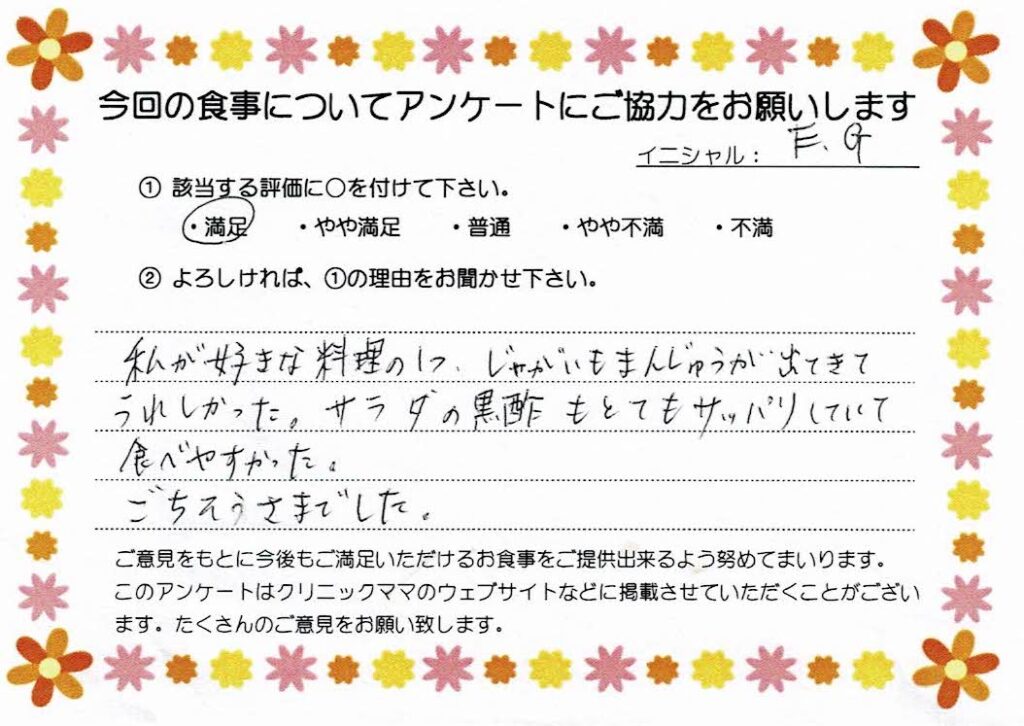 今回の食事についてアンケートにご協力をお願いします
イニシャル： E. G
① 該当する評価に○を付けて下さい。
・満足 ・やや満足 ・普通 ・やや不満 ・不満
② よろしければ、①の理由をお聞かせ下さい。
私が好きな料理の1つ、じゃがいもまんじゅうが出てきて
うれしかった。サラダの黒酢もとてもサッパリしていて
食べやすかった。
ごちそうさまでした。
ご意見をもとに今後もご満足いただけるお食事をご提供出来るよう努めてまいります。
このアンケートはクリニックママのウェブサイトなどに掲載させていただくことがござい
ます。たくさんのご意見をお願い致します。